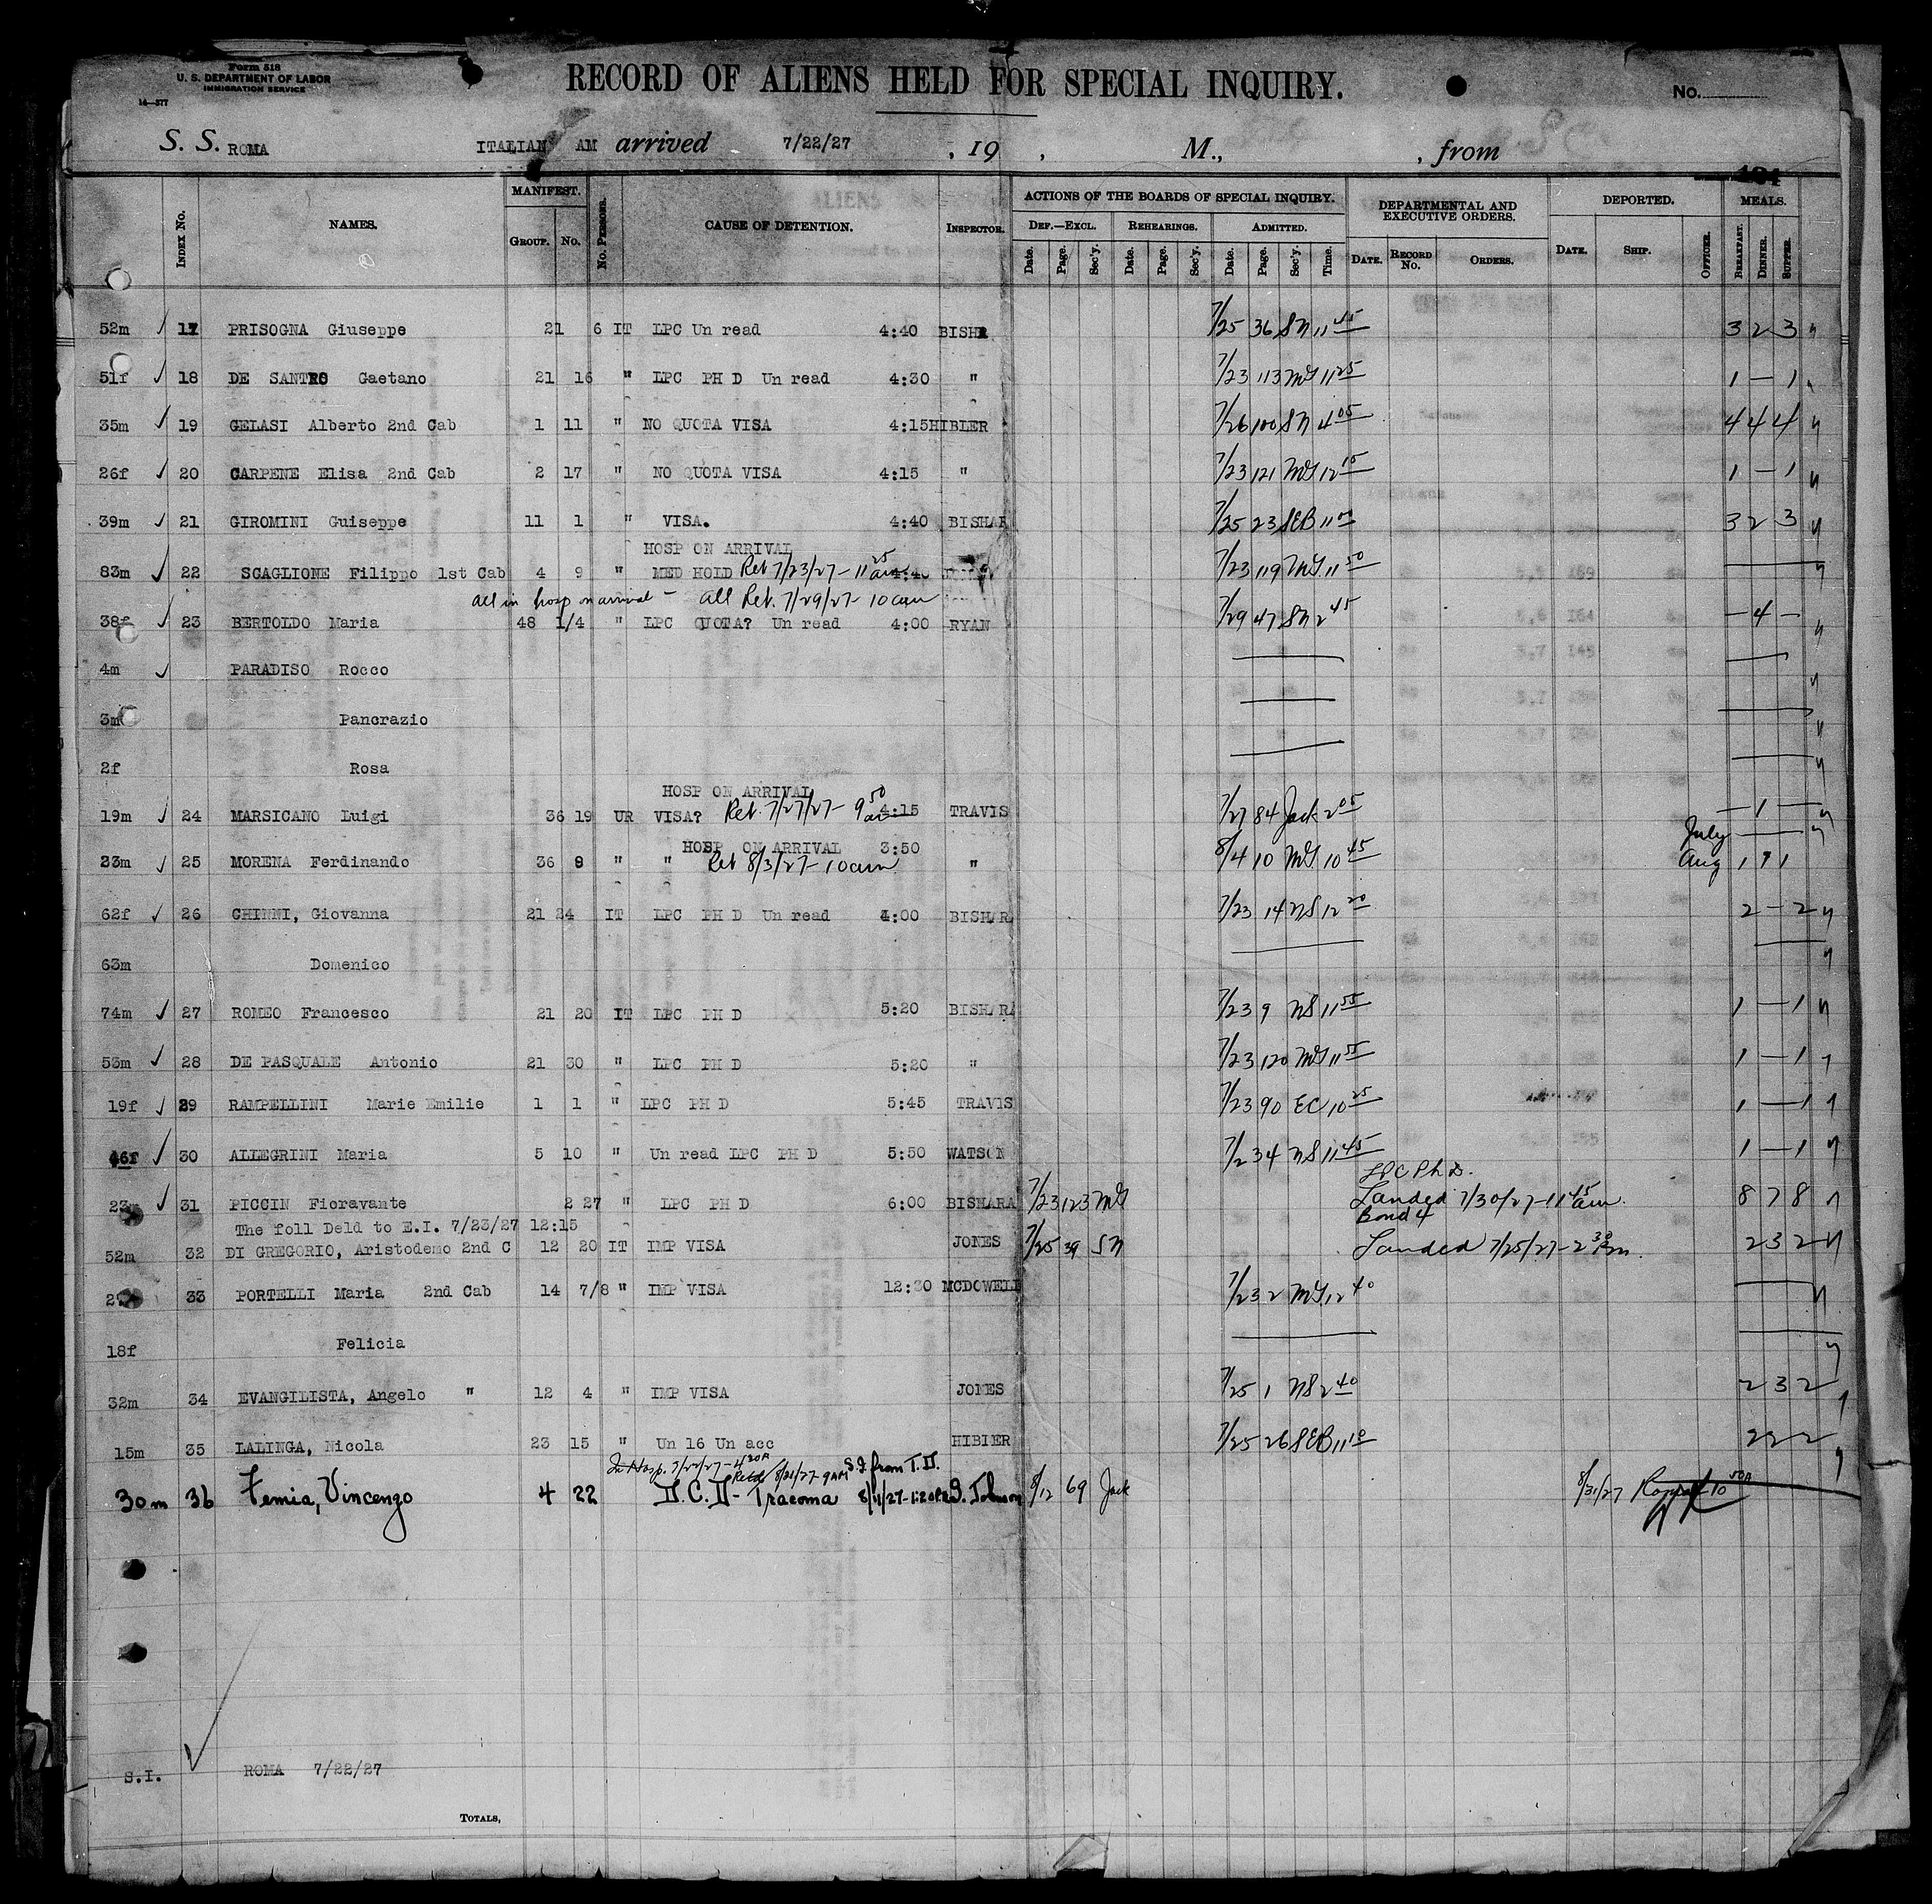 Form 518
U. S. DEPARTMENT OF LABOR
IMMIGRATION SERVICE
14—577
RECORD OF ALIENS HELD FOR SPECIAL INQUIRY.
No.
S. S. ROMA ITALIAN AM arrived 7/22/27 , 19 , M., , from
MANIFEST. ACTIONS OF THE BOARDS OF SPECIAL INQUIRY. DEPARTMENTAL AND EXECUTIVE ORDERS. DEPORTED. MEALS.
INDEX No. NAMES. GROUP. No. No. PERSONS. CAUSE OF DETENTION. INSPECTOR. DEF.—EXCL. REHEARINGS. ADMITTED.
Date. Page. Sec'y. Date. Page. Sec'y. Date. Page. Sec'y. Time. DATE. RECORD No. ORDERS. DATE. SHIP. OFFICER. BREAKFAST. DINNER. SUPPER.
52m 17 PRISOGNA Giuseppe 21 6 IT LPC Un read 4:40 BISHR 7/25 36 SN 11 45 3 2 3
51f 18 DE SANTRO Gaetano 21 16 " LPC PH D Un read 4:30 " 7/23 113 MG 11 25 1 — 1
35m 19 GELASI Alberto 2nd Cab 1 11 " NO QUOTA VISA 4:15 HIBLER 7/26 100 SN 4 05 4 4 4
26f 20 CARPENE Elisa 2nd Cab 2 17 " NO QUOTA VISA 4:15 " 7/23 121 MG 12 15 1 — 1
39m 21 GIROMINI Guiseppe 11 1 " VISA. 4:40 BISHAR 7/25 23 SEB 11 00 3 2 3
HOSP ON ARRIVAL
83m 22 SCAGLIONE Filippo 1st Cab 4 9 " MED HOLD Ret 7/23/27 - 11 25 am 4:40 7/23 119 MG 11 50
All in hosp on arrival - All Ret. 7/29/27 - 10 am
38f 23 BERTOLDO Maria 48 1/4 " LPC QUOTA? Un read 4:00 RYAN 7/29 47 SN 2 45 — 4 —
4m PARADISO Rocco
3m Pancrazio
2f Rosa
HOSP ON ARRIVAL
19m 24 MARSICANO Luigi 36 19 UR VISA? Ret. 7/27/27 - 9 50 am 4:15 TRAVIS 7/27 84 Jack 2 05 — 1 —
HOSP ON ARRIVAL 3:50 July
23m 25 MORENA Ferdinando 36 9 " " Ret 8/3/27 - 10 am " 8/4 10 MG 10 45 Aug 1 1 1
62f 26 CHINNI, Giovanna 21 24 IT LPC PH D Un read 4:00 BISHARA 7/23 14 NS 12 20 2 — 2
63m Domenico
74m 27 ROMEO Francesco 21 20 IT LPC PH D 5:20 BISHARA 7/23 9 NS 11 55 1 — 1
53m 28 DE PASQUALE Antonio 21 30 " LPC PH D 5:20 " 7/23 120 MG 11 55 1 — 1
19f 29 RAMPELLINI Marie Emilie 1 1 " LPC PH D 5:45 TRAVIS 7/23 90 EC 10 25 1 — 1
46f 30 ALLEGRINI Maria 5 10 " Un read LPC PH D 5:50 WATSON 7/23 4 NS 11 45 1 — 1
LPC Ph D.
23m 31 PICCIN Fioravante 2 27 " LPC PH D 6:00 BISHARA 7/23 123 MG Landed 7/30/27 - 11 45 am. 8 7 8
Bond 4
The foll Deld to E.I. 7/23/27 12:15
52m 32 DI GREGORIO, Aristodemo 2nd C 12 20 IT IMP VISA JONES 7/25 39 SN Landed 7/25/27 - 2 30 Pm. 2 3 2
33 PORTELLI Maria 2nd Cab 14 7/8 " IMP VISA 12:30 MCDOWELL 7/23 2 MG 12 40
18f Felicia
32m 34 EVANGILISTA, Angelo " 12 4 " IMP VISA JONES 7/25 1 NS 2 40 2 3 2
15m 35 LALINGA, Nicola 23 15 " Un 16 Un acc HIBIER 7/25 26 SEB 11 10 2 2 2
In Hosp. 7/22/27 - Retd 8/31/27 - 9 AM S.I from T.D.
30m 36 Femia, Vincenzo 4 22 D.C.D - Tracoma 8/11/27 - 1:20 8/12 69 Jack 8/31/27
S.I. ROMA 7/22/27
TOTALS,